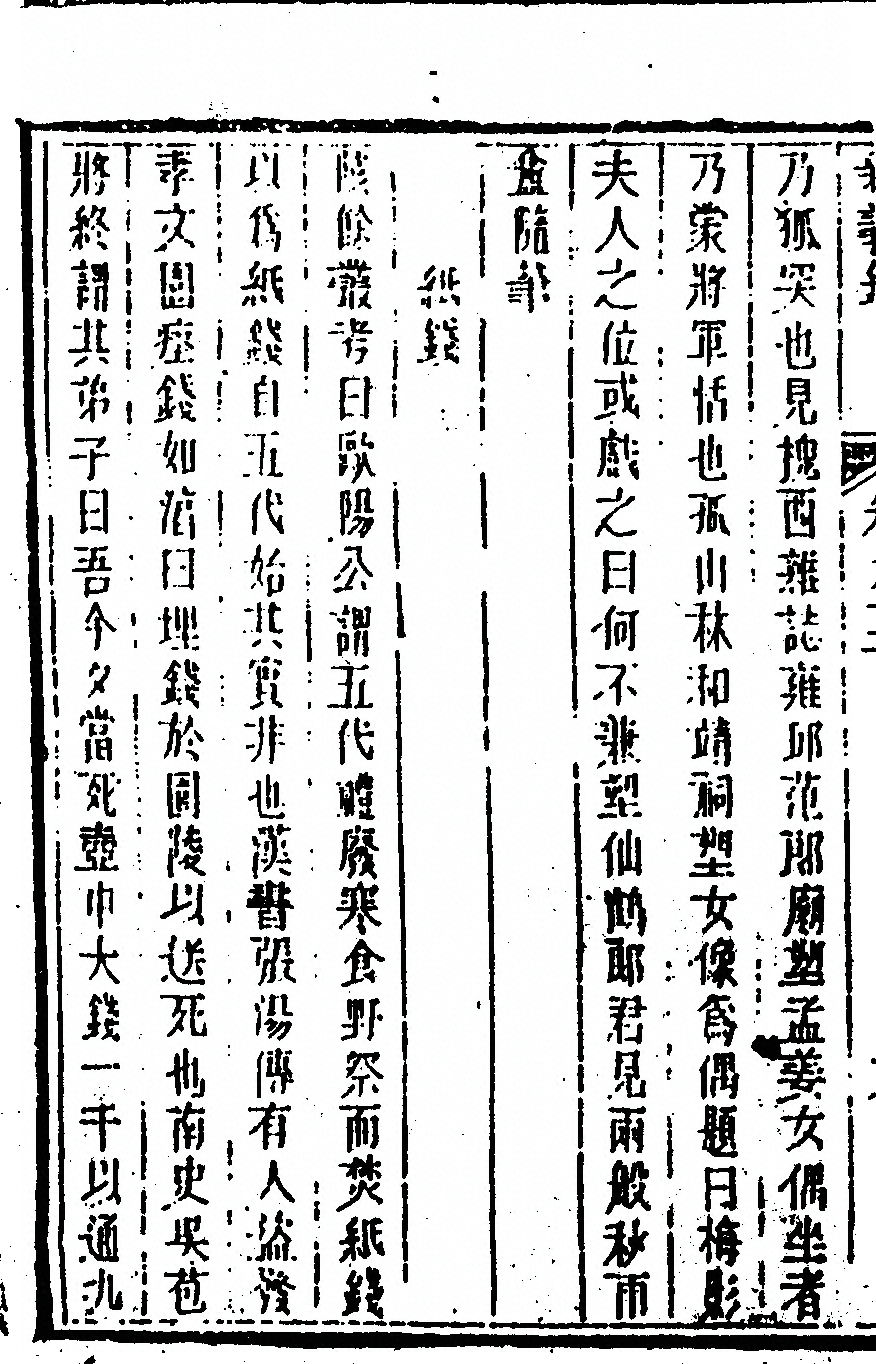 乃狐突也見揑酉雜誌雍邱范郎廟塑孟姜女偶坐者
乃蒙將軍恬也孤山林和靖祠塑女像爲偶題曰梅影
夫人之位或戲之曰何不兼塑仙鶴郎君見兩般秋雨
盦隨筆
紙錢
陔餘叢考曰歐陽公謂五代禮廢寒食野祭而焚紙錢
以爲紙錢自五代始其實非也漢書張湯傳有人盜發
孝文園瘞錢如淳曰埋錢於園陵以送死也南史吳苞
將終謂其弟子曰吾今夕當死壺中大錢一千以通九